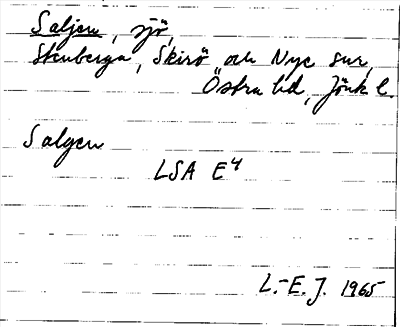 Saljen, sjö,
Stenberga, Skirö och Nye snr,
Östra hd, Jönk l.
Salgen
LSA E4
L.-E.J. 1965